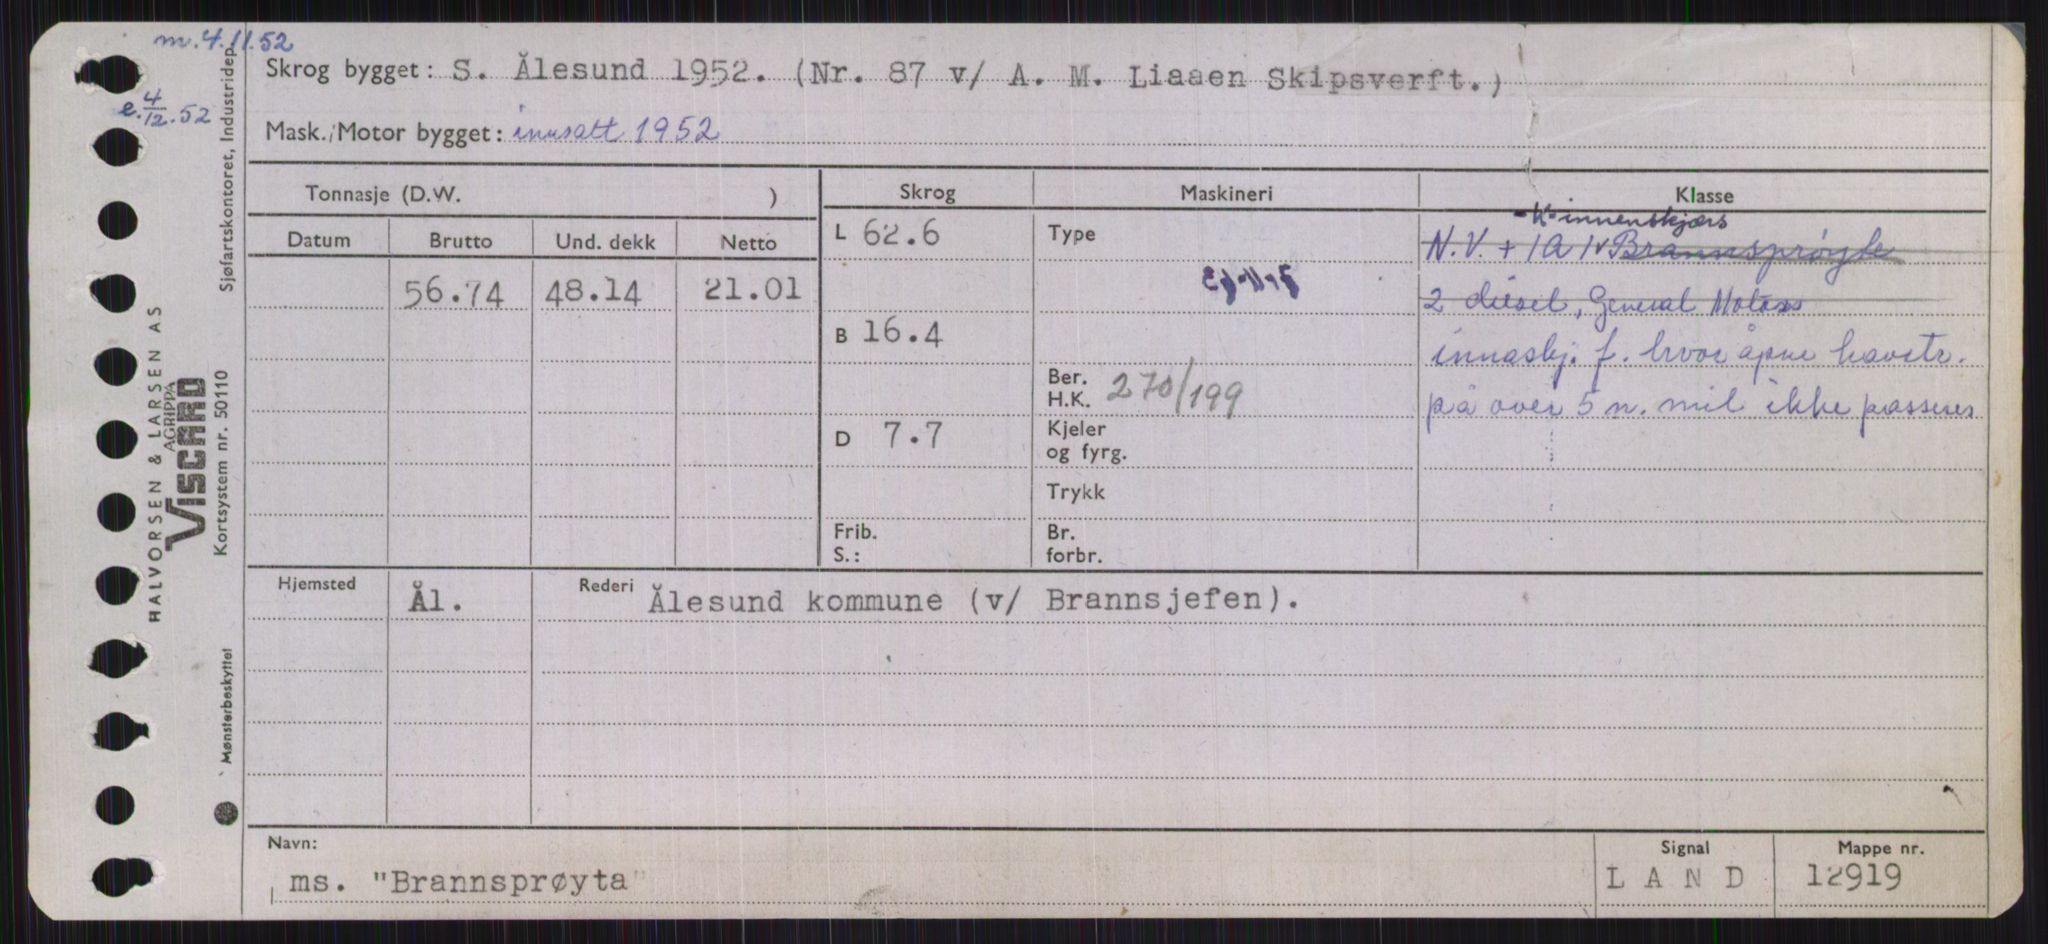 m. 4.11.52
e. 4/12.52
Skrog bygget: S. Ålesund 1952. (Nr. 87 v/ A. M. Liaaen Skipsverft.)
Mask./Motor bygget: innsatt 1952
Tonnasje (D.W. )
Skrog
Maskineri
Klasse
Datum
Brutto
Und. dekk
Netto
56.74
48.14
21.01
L 62.6
B 16.4
D 7.7
Frib.
S.:
Type
Ber.
H.K. 270/199
Kjeler
og fyrg.
Trykk
Br.
forbr.
-"K"-innenskjærs
N.V. + 1A 1v Brannsprøyte
2 diesel, General Motors
innaskj. f. hvor åpne havstr.
på over 5 n. mil ikke passeres
Hjemsted
Ål.
Rederi
Ålesund kommune (v/ Brannsjefen).
Navn:
ms. "Brannsprøyta"
Signal
LAND
Mappe nr.
12919
HALVORSEN & LARSEN AS
AGRIPPA
VISCARD
Kortsystem nr. 50110
Sjøfartskontoret, Industridep.
Mønsterbeskyttet